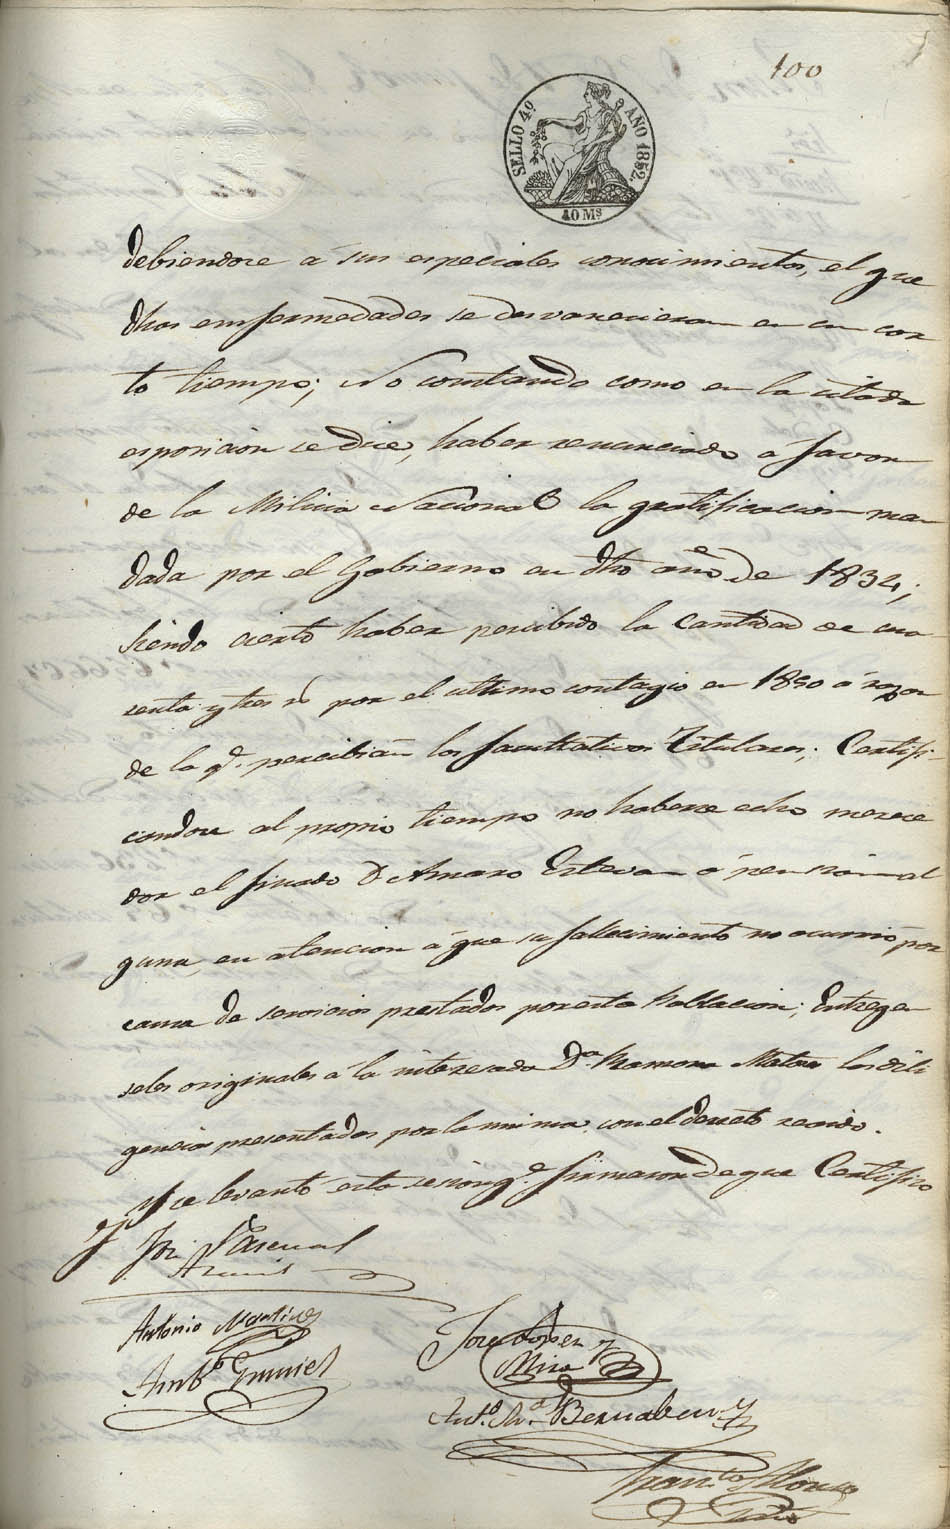 100
SELLO 4º AÑO 1852.
40 Ms
debiendose á sus especiales conocimientos, el que
dhas enfermedades se desvanecieran en un cor
to tiempo; No constando como en la citada
esposicion se dice, haber renunciado á favor
de la Milicia Nacional la gratificacion man
dada por el Gobierno en dho año de 1834;
siendo cierto haber percibido la cantidad de cua
renta y tres rs por el ultimo contagio en 1850 á razon
de la q.e percibian los facultativos Titulares; Certifi-
candose al propio tiempo no haberse echo merece
dor el finado D Amaro Estevan á pension al
guna, en atencion á que su fallecimiento no ocurrió por
causa de servicios prestados por esta Poblacion; Entreguen
seles originales á la interesada D.a Ramona Mataix las dili
gencias presentadas por la misma, con el decreto recaido.
Y se levantó esta sesion q.e firmaron de que Certifico
Jose Pascual
Antonio Martinez
Jose Lopez y
Mira
Amb.o Gumiel
Ant.o M.a Bernabeu
Fran.co Alonso